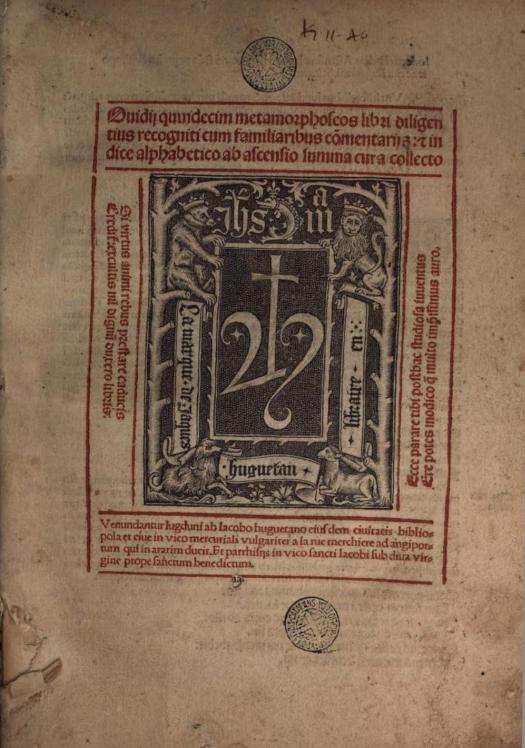 K 11-40
Ouidij quindecim metamorphoseos libri diligen
tius recogniti cum familiaribus cōmentarijs: et in
dice alphabetico ab ascensio summa cura collecto
Si virtus animi rebus prestare caducis
Credit: excultis nil dignū duxero libris:
Jhs
m a
La marque de Jaques
huguetan
libraire en
Ecce parare tibi posthac studiosa iuuentus
Ere potes modico q̄ multo imp̄ssimus auro.
Venundantur lugduni ab Iacobo huguetano eiusdem ciuitatis biblio-
pola et ciue in vico mercuriali vulgariter a la rue merchiere ad angipor-
tum qui in ararim ducit. Et parrhisijs in vico sancti Iacobi sub diua vir-
gine prope sanctum benedictum.